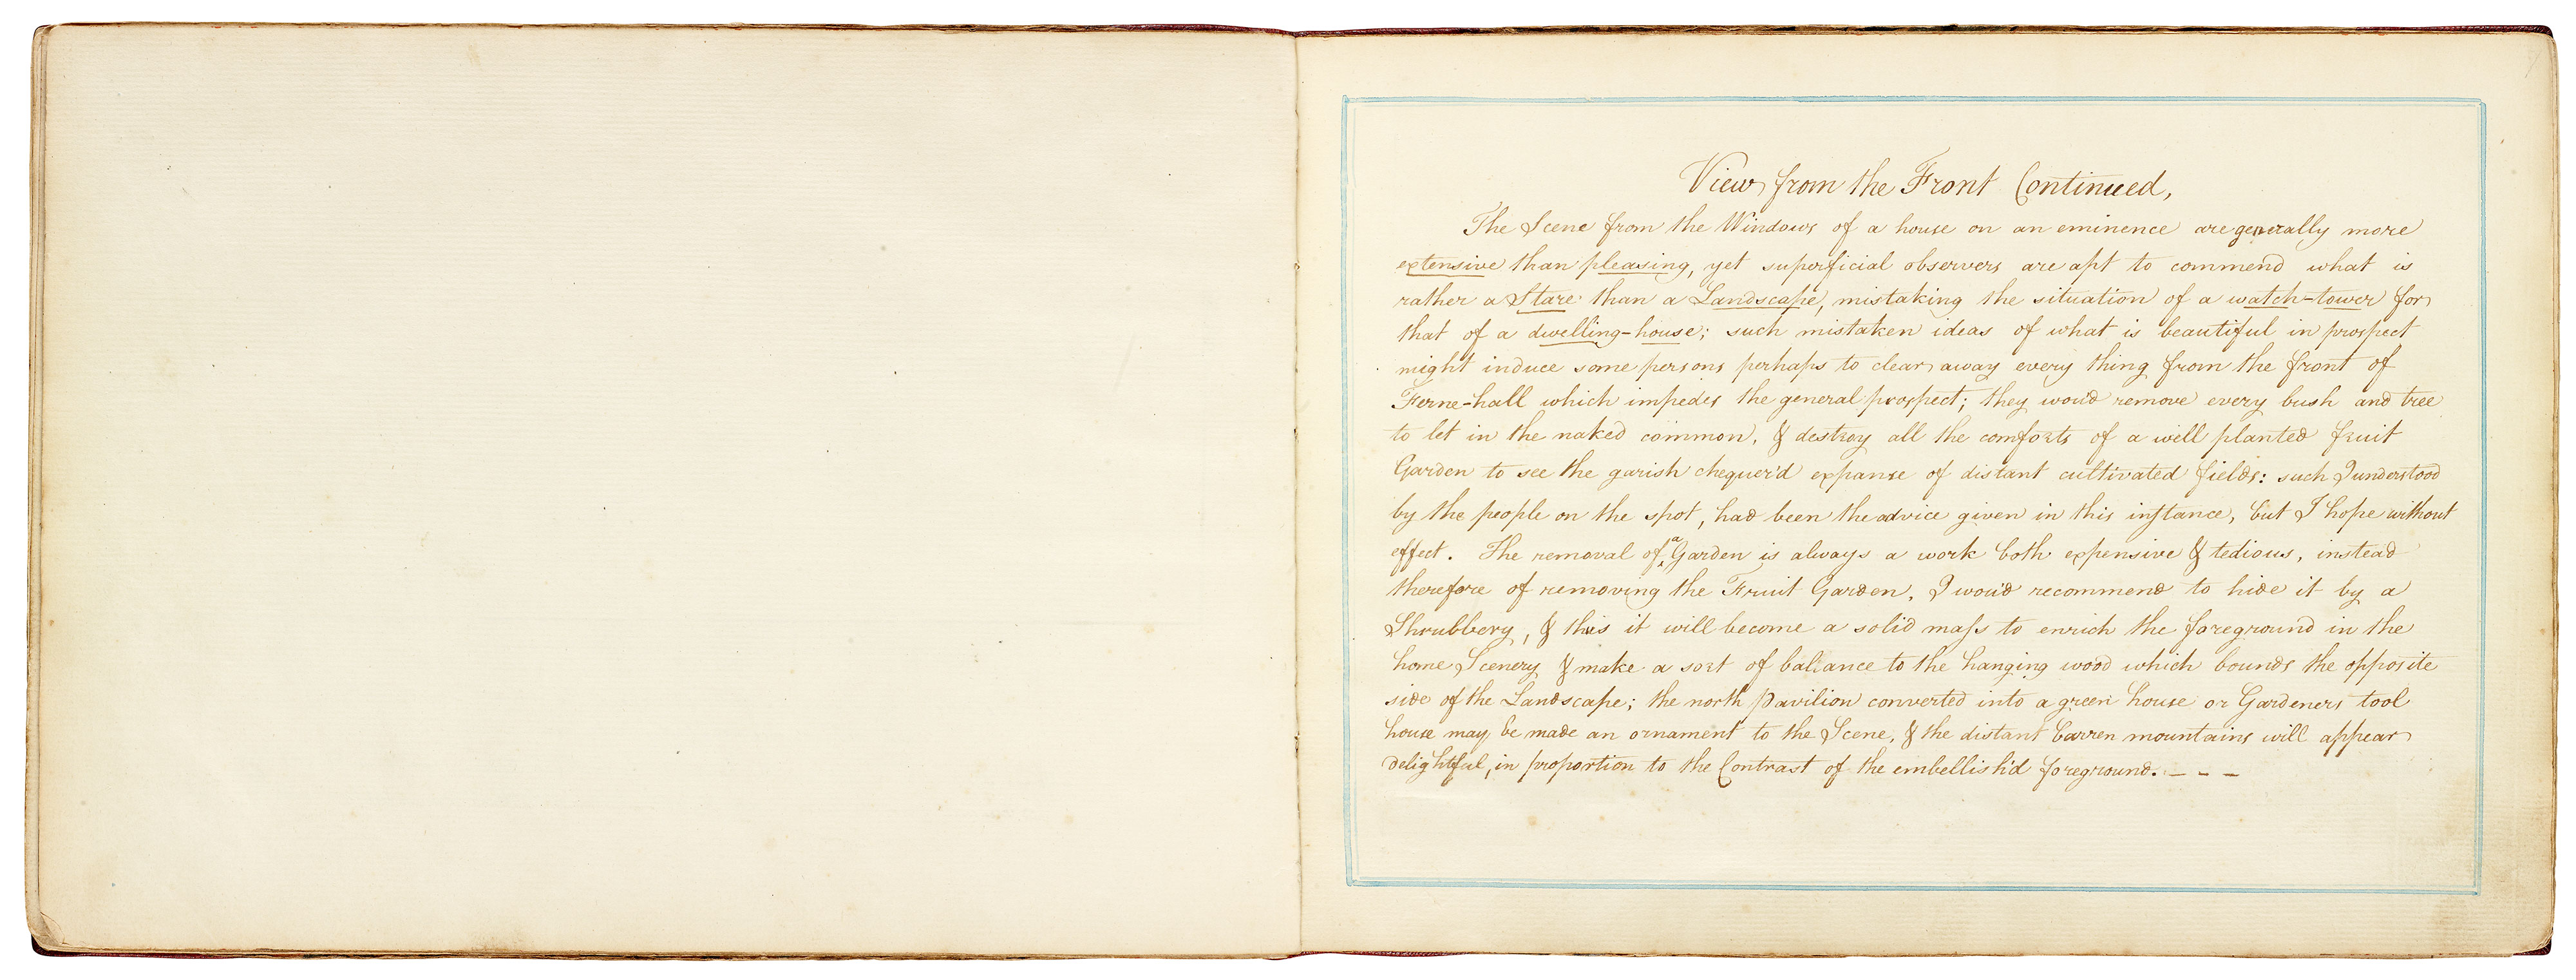 View from the Front Continued,
The Scene from the Windows of a house on an eminence are generally more
extensive than pleasing, yet superficial observers are apt to commend what is
rather a Stare than a Landscape, mistaking the situation of a watch-tower for
that of a dwelling-house; such mistaken ideas of what is beautiful in prospect
might induce some persons perhaps to clear away every thing from the front of
Ferne-hall which impedes the general prospect; they wou'd remove every bush and tree
to let in the naked common, & destroy all the comforts of a well planted fruit
Garden to see the garish chequer'd expanse of distant cultivated fields: such I understood
by the people on the spot, had been the advice given in this instance, but I hope without
effect. The removal of a Garden is always a work both expensive & tedious, instead
therefore of removing the Fruit Garden, I wou'd recommend to hide it by a
Shrubbery, & this it will become a solid mass to enrich the foreground in the
home Scenery & make a sort of ballance to the hanging wood which bounds the opposite
side of the Landscape; the north pavilion converted into a green house or Gardeners tool
house may be made an ornament to the Scene, & the distant barren mountains will appear
delightful, in proportion to the Contrast of the embellish'd foreground. - - -